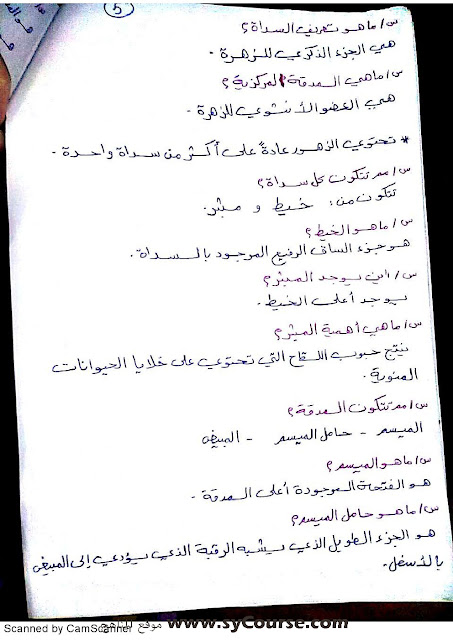 5
س/ ما هو تعريف السداة؟
هي الجزء الذكري للزهرة.
س/ ما هي المدقة المركزية؟
هي العضو الأنثوي للزهرة.
* تحتوي الزهور عادةً على أكثر من سداة واحدة.
س/ مم تتكون كل سداة؟
تتكون من: خيط و مئبر.
س/ ما هو الخيط؟
هو جزء الساق الرفيع الموجود بالسداة.
س/ أين يوجد المئبر؟
يوجد أعلى الخيط.
س/ ما هي أهمية المئبر؟
ينتج حبوب اللقاح التي تحتوي على خلايا الحيوانات
المنوية.
س/ مم تتكون المدقة؟
الميسم - حامل الميسم - المبيض
س/ ما هو الميسم؟
هو الفتحة الموجودة أعلى المدقة.
س/ ما هو حامل الميسم؟
هو الجزء الطويل الذي يشبه الرقبة الذي يؤدي إلى المبيض
بالأسفل.
موقع المناهج www.syCourse.com
Scanned by CamScanner